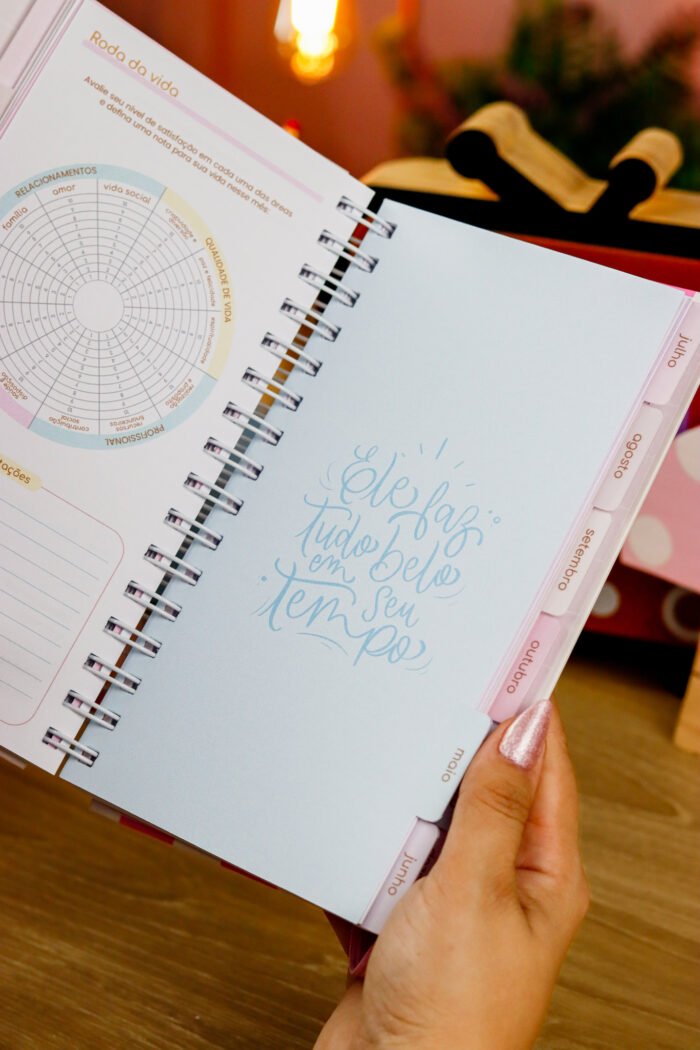 Roda da vida
Avalie seu nível de satisfação em cada uma das áreas
e defina uma nota para sua vida nesse mês:
RELACIONAMENTOS
família
amor
vida social
QUALIDADE DE VIDA
criatividade e
diversão
paz e felicidade
espiritualidade
PROFISSIONAL
realização
e propósito
recursos
financeiros
contribuição
social
Ele faz
tudo belo
em seu
Tempo
julho
agosto
setembro
outubro
maio
junho